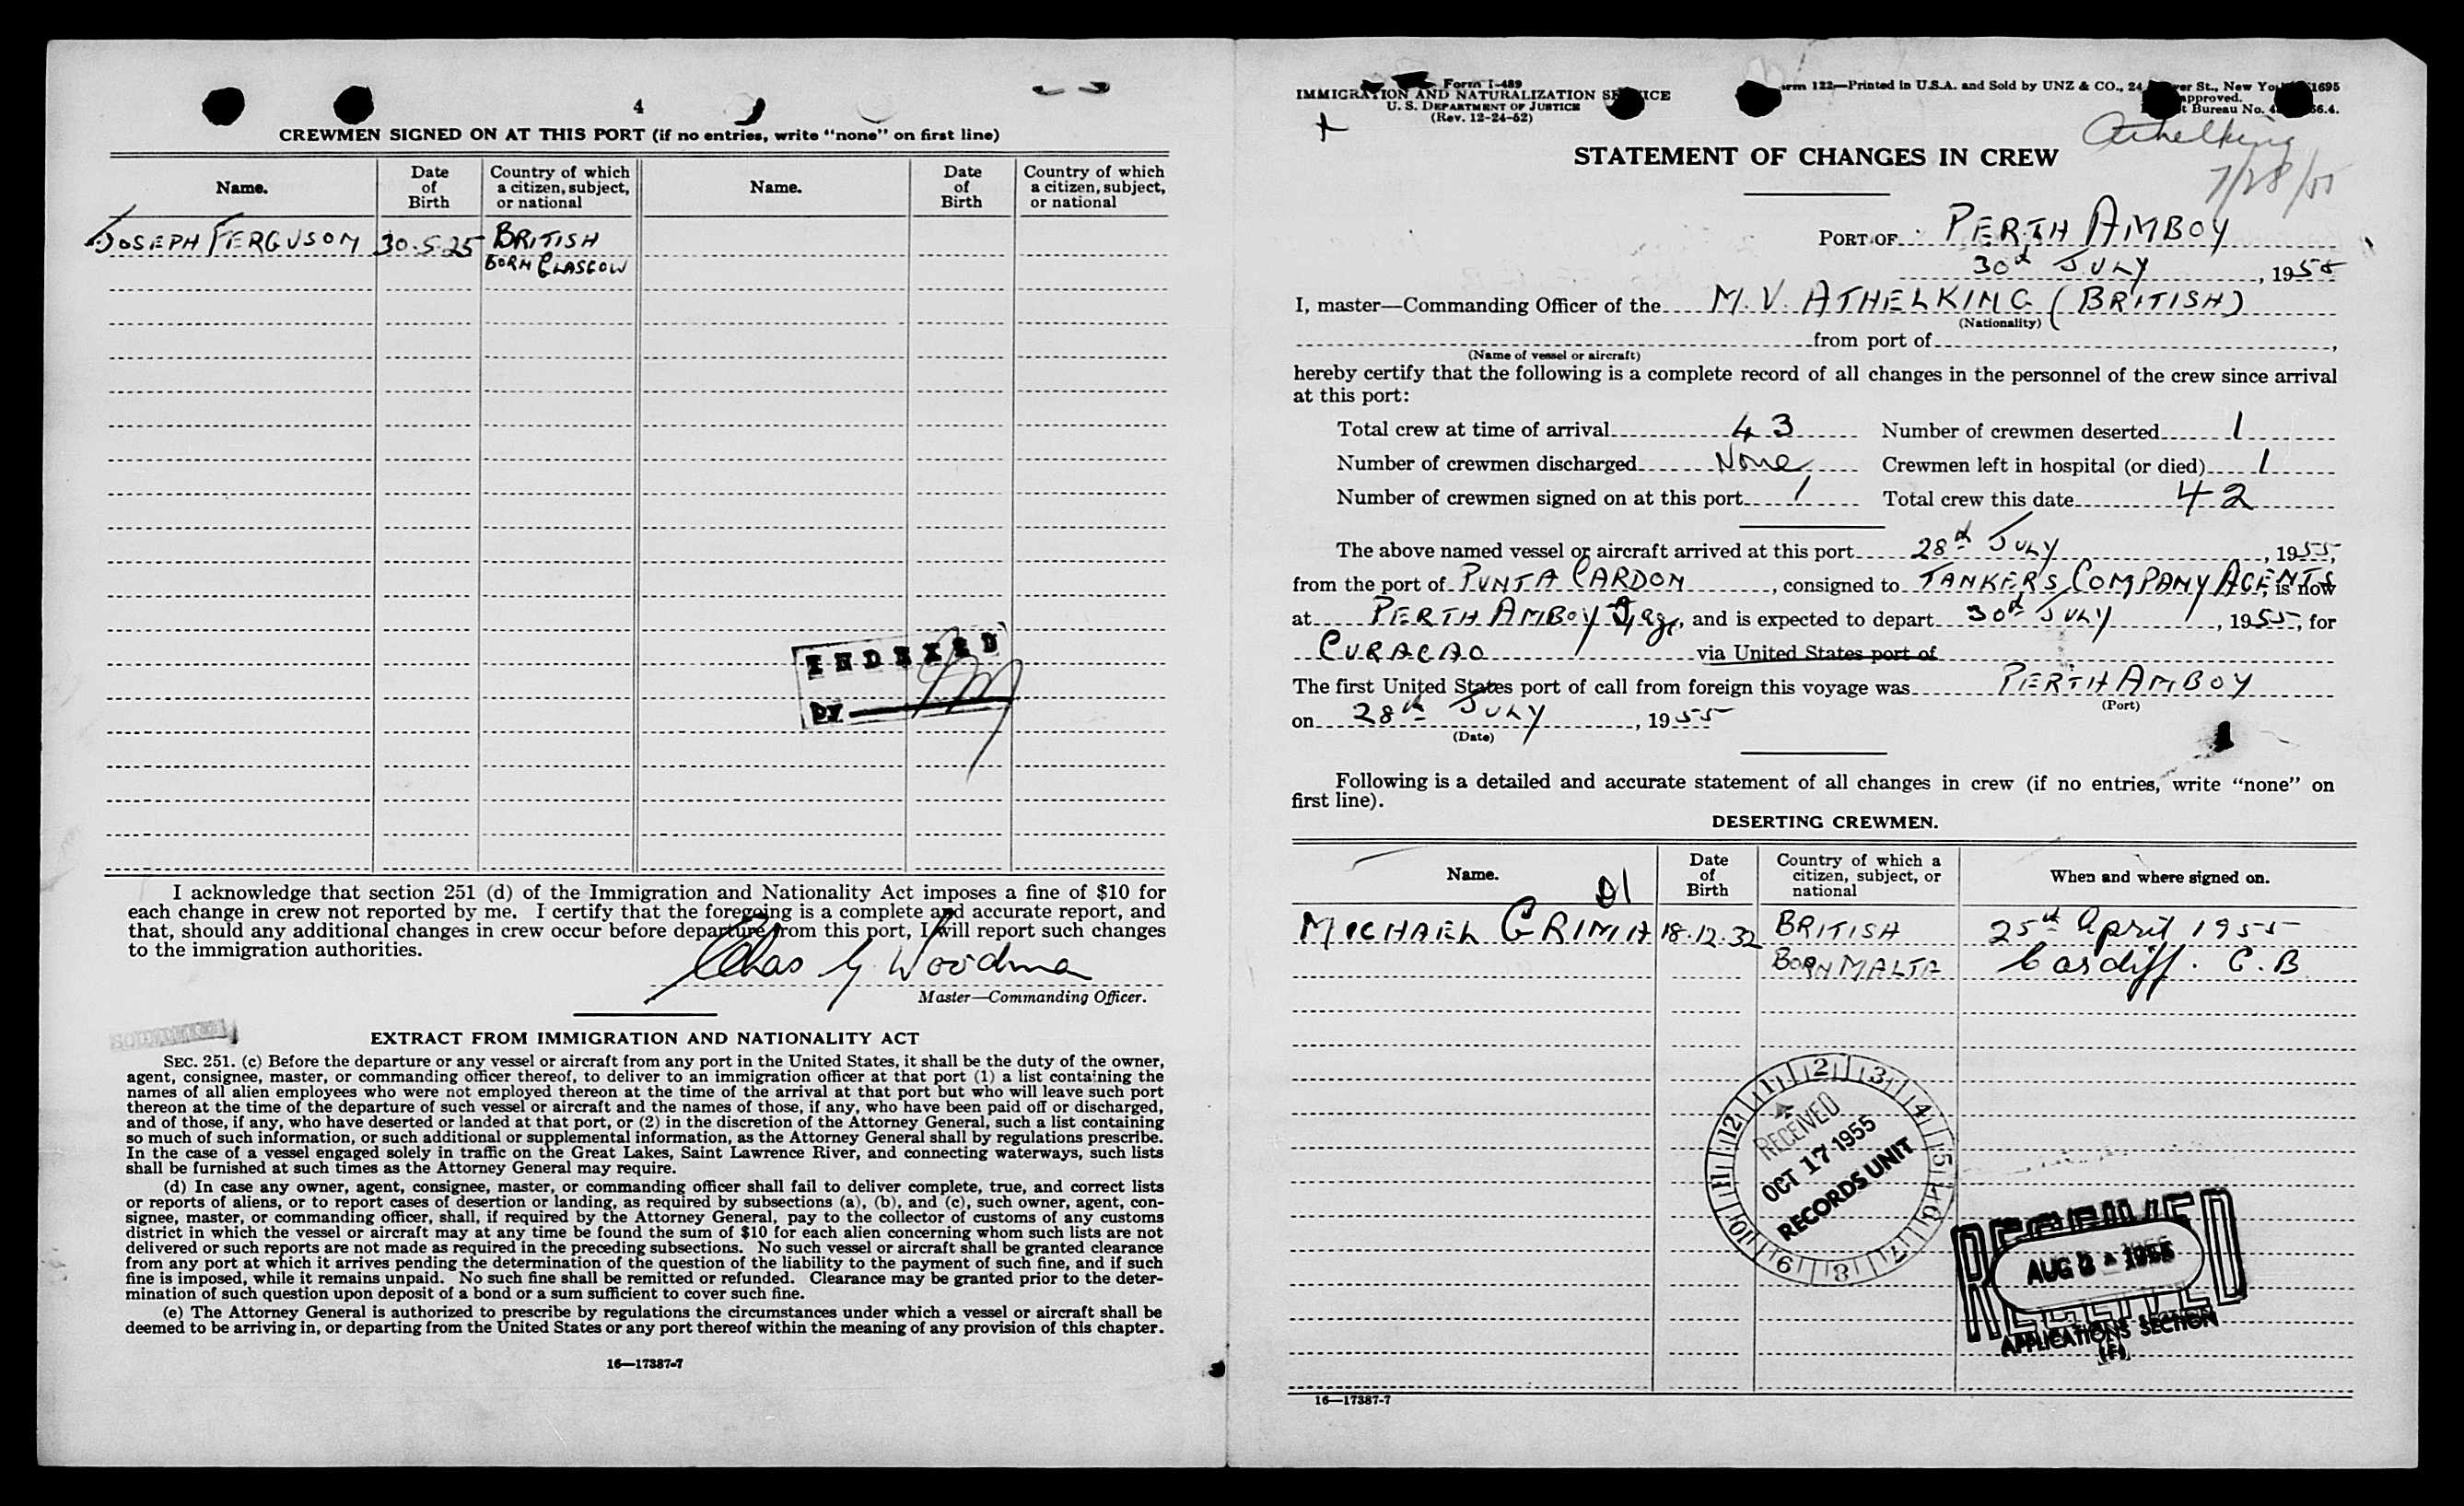 4
CREWMEN SIGNED ON AT THIS PORT (if no entries, write "none" on first line)
Name. Date of Birth Country of which a citizen, subject, or national Name. Date of Birth Country of which a citizen, subject, or national
JOSEPH FERGUSON 30.5.25 BRITISH
BORN GLASGOW
INDEXED
BY
I acknowledge that section 251 (d) of the Immigration and Nationality Act imposes a fine of $10 for
each change in crew not reported by me. I certify that the foregoing is a complete and accurate report, and
that, should any additional changes in crew occur before departure from this port, I will report such changes
to the immigration authorities.
Chas G. Woodma
Master—Commanding Officer.
EXTRACT FROM IMMIGRATION AND NATIONALITY ACT
SEC. 251. (c) Before the departure or any vessel or aircraft from any port in the United States, it shall be the duty of the owner,
agent, consignee, master, or commanding officer thereof, to deliver to an immigration officer at that port (1) a list containing the
names of all alien employees who were not employed thereon at the time of the arrival at that port but who will leave such port
thereon at the time of the departure of such vessel or aircraft and the names of those, if any, who have been paid off or discharged,
and of those, if any, who have deserted or landed at that port, or (2) in the discretion of the Attorney General, such a list containing
so much of such information, or such additional or supplemental information, as the Attorney General shall by regulations prescribe.
In the case of a vessel engaged solely in traffic on the Great Lakes, Saint Lawrence River, and connecting waterways, such lists
shall be furnished at such times as the Attorney General may require.
(d) In case any owner, agent, consignee, master, or commanding officer shall fail to deliver complete, true, and correct lists
or reports of aliens, or to report cases of desertion or landing, as required by subsections (a), (b), and (c), such owner, agent, con-
signee, master, or commanding officer, shall, if required by the Attorney General, pay to the collector of customs of any customs
district in which the vessel or aircraft may at any time be found the sum of $10 for each alien concerning whom such lists are not
delivered or such reports are not made as required in the preceding subsections. No such vessel or aircraft shall be granted clearance
from any port at which it arrives pending the determination of the question of the liability to the payment of such fine, and if such
fine is imposed, while it remains unpaid. No such fine shall be remitted or refunded. Clearance may be granted prior to the deter-
mination of such question upon deposit of a bond or a sum sufficient to cover such fine.
(e) The Attorney General is authorized to prescribe by regulations the circumstances under which a vessel or aircraft shall be
deemed to be arriving in, or departing from the United States or any port thereof within the meaning of any provision of this chapter.
16—17387-7
Form I-489
IMMIGRATION AND NATURALIZATION SERVICE
U. S. DEPARTMENT OF JUSTICE
(Rev. 12-24-52)
122—Printed in U.S.A. and Sold by UNZ & CO., 24 St., New 1695
approved.
Bureau No. 6.4.
Athelking
7/28/55
STATEMENT OF CHANGES IN CREW
PORT OF PERTH AMBOY
30th JULY, 1955
I, master—Commanding Officer of the M.V. ATHELKING (BRITISH)
(Nationality)
from port of ,
(Name of vessel or aircraft)
hereby certify that the following is a complete record of all changes in the personnel of the crew since arrival
at this port:
Total crew at time of arrival 43 Number of crewmen deserted 1
Number of crewmen discharged None Crewmen left in hospital (or died) 1
Number of crewmen signed on at this port 1 Total crew this date 42
The above named vessel or aircraft arrived at this port 28th JULY, 1955,
from the port of PUNTA CARDON, consigned to TANKERS COMPANY AGENTS, is now
at PERTH AMBOY, and is expected to depart 30th JULY, 1955, for
CURACAO via United States port of
The first United States port of call from foreign this voyage was PERTH AMBOY
(Port)
on 28th JULY, 1955
(Date)
Following is a detailed and accurate statement of all changes in crew (if no entries, write "none" on
first line).
DESERTING CREWMEN.
Name. Date of Birth Country of which a citizen, subject, or national When and where signed on.
MICHAEL GRIMA 18.12.32 BRITISH 25th April 1955
BORN MALTA Cardiff. G.B
1 2 3 4 5 6 7 8 9 10 11 12
RECEIVED
OCT 17 1955
RECORDS UNIT
RECEIVED
AUG 3 - 1955
APPLICATIONS SECTION
(F)
16—17387-7